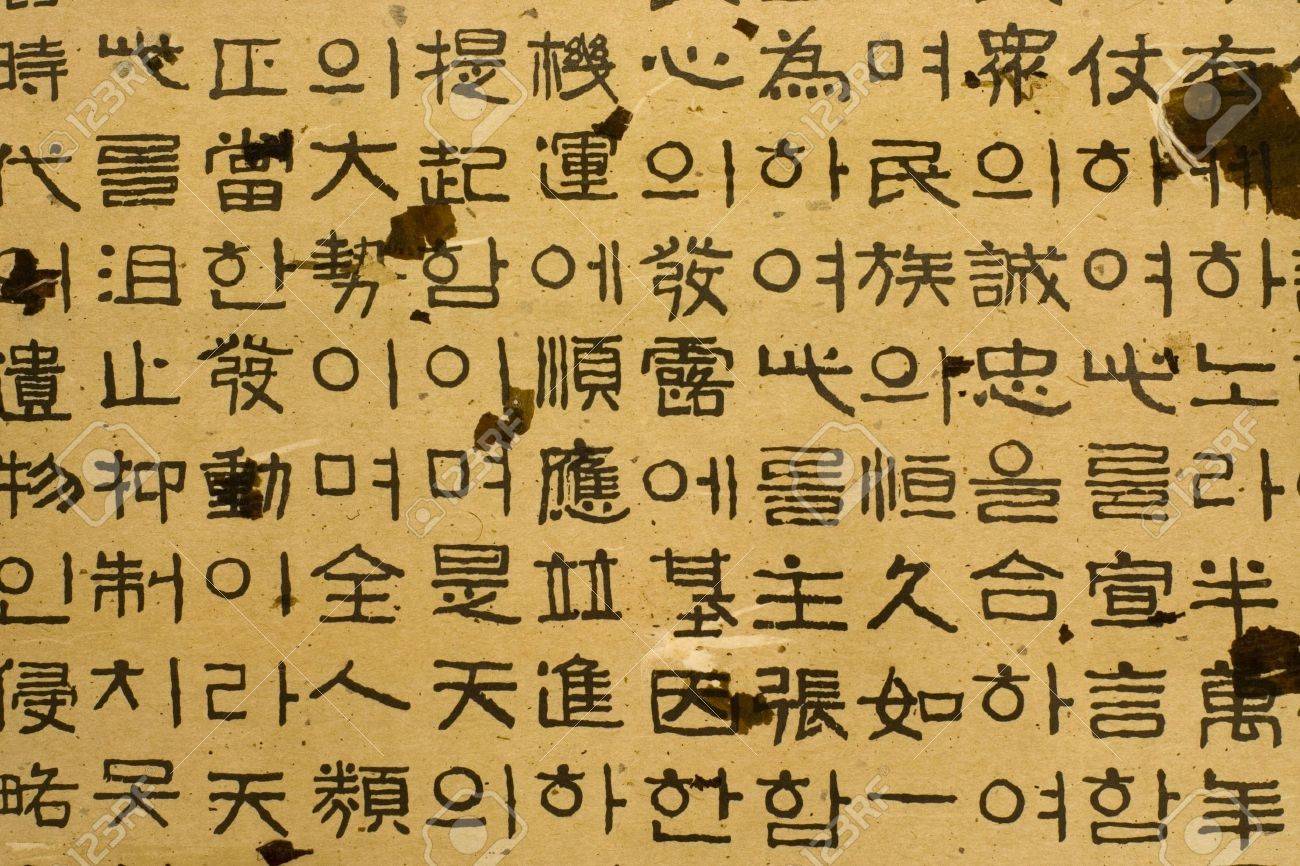 有케하노라半萬年
仗하여此를宣言함
衆의誠忠을合하여
며民族의恒久如一
為하여此를主張함
心의發露에基因한
機運에順應並進하
提起함이며是天의
의大勢이며全人類
正當한發動이라天
此를沮止抑制치못
時代의遺物인侵略